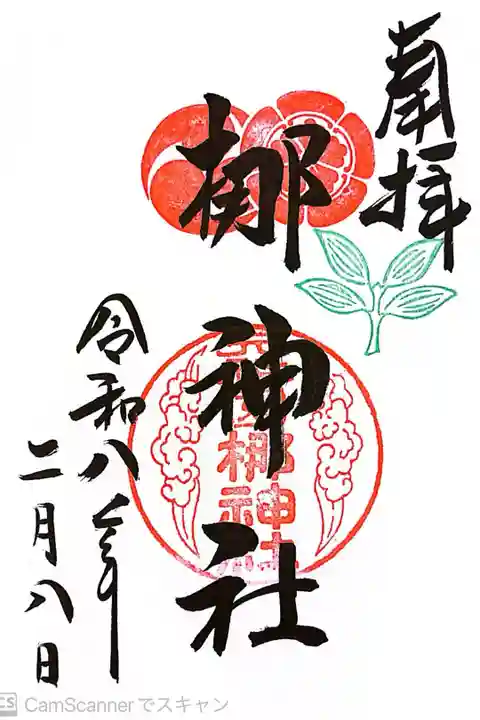 奉拝
梛神社
令和八年
二月八日
梛神社
CS CamScannerでスキャン